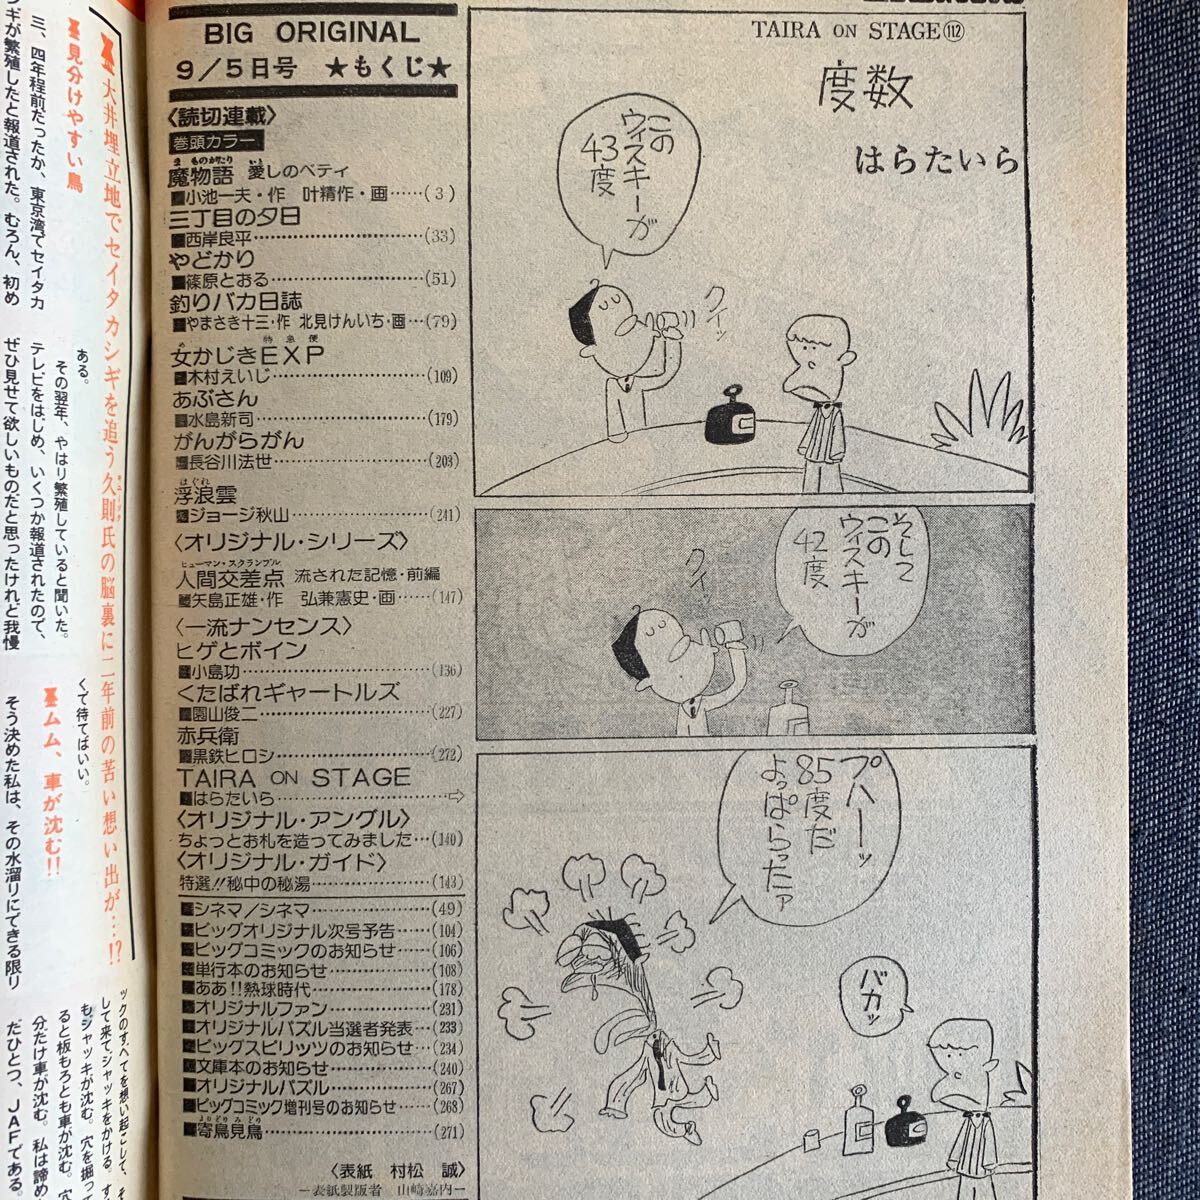 BIG ORIGINAL
9/5日号 ★もくじ★
〈読切連載〉
巻頭カラー
魔物語 愛しのベティ
■小池一夫・作 叶精作・画……(3)
三丁目の夕日
■西岸良平……(33)
やどかり
■篠原とおる……(51)
釣りバカ日誌
■やまさき十三・作 北見けんいち・画…(79)
女かじきEXP
■木村えいじ……(109)
あぶさん
■水島新司……(179)
がんがらがん
■長谷川法世……(203)
浮浪雲
■ジョージ秋山……(241)
〈オリジナル・シリーズ〉
人間交差点 流された記憶・前編
■矢島正雄・作 弘兼憲史・画……(147)
〈一流ナンセンス〉
ヒゲとボイン
■小島功……(136)
くたばれギャートルズ
■園山俊二……(227)
赤兵衛
■黒鉄ヒロシ……(272)
TAIRA ON STAGE
■はらたいら……⇨
〈オリジナル・アングル〉
ちょっとお札を造ってみました…(140)
〈オリジナル・ガイド〉
特選!!秘中の秘湯……(143)
■シネマ/シネマ……(49)
■ビッグオリジナル次号予告……(104)
■ビッグコミックのお知らせ……(106)
■単行本のお知らせ……(108)
■ああ!!熱球時代……(178)
■オリジナルファン……(231)
■オリジナルパズル当選者発表…(233)
■ビッグスピリッツのお知らせ…(234)
■文庫本のお知らせ……(240)
■オリジナルパズル……(267)
■ビッグコミック増刊号のお知らせ……(268)
■寄鳥見鳥……(271)
〈表紙 村松 誠〉
―表紙製版者 山崎嘉内―
TAIRA ON STAGE⑫
度数
はらたいら
このウィスキーが43度
クイッ
そしてこのウィスキーが42度
クイッ
プハーッ85度だよっぱらったァ
バカッ
大井埋立地でセイタカシギを追う久則氏の脳裏に二年前の苦い想い出が…!?
見分けやすい鳥
三、四年程前だったか、東京湾でセイタカ
シギが繁殖したと報道された。むろん、初め
ある。
その翌年、やはり繁殖していると聞いた。
テレビをはじめ、いくつか報道されたので、
ぜひ見せて欲しいものだと思ったけれど我慢
くて待てばいい。
ムム、車が沈む!!
そう決めた私は、その水溜りにできる限り
ックのすべてを想い起こして、そ
して来てジャッキをかける。す
もジャッキが沈む。穴を掘って
ると板もろとも車が沈む。穴
分だけ車が沈む。私は諦め
だひとつ、JAFである。